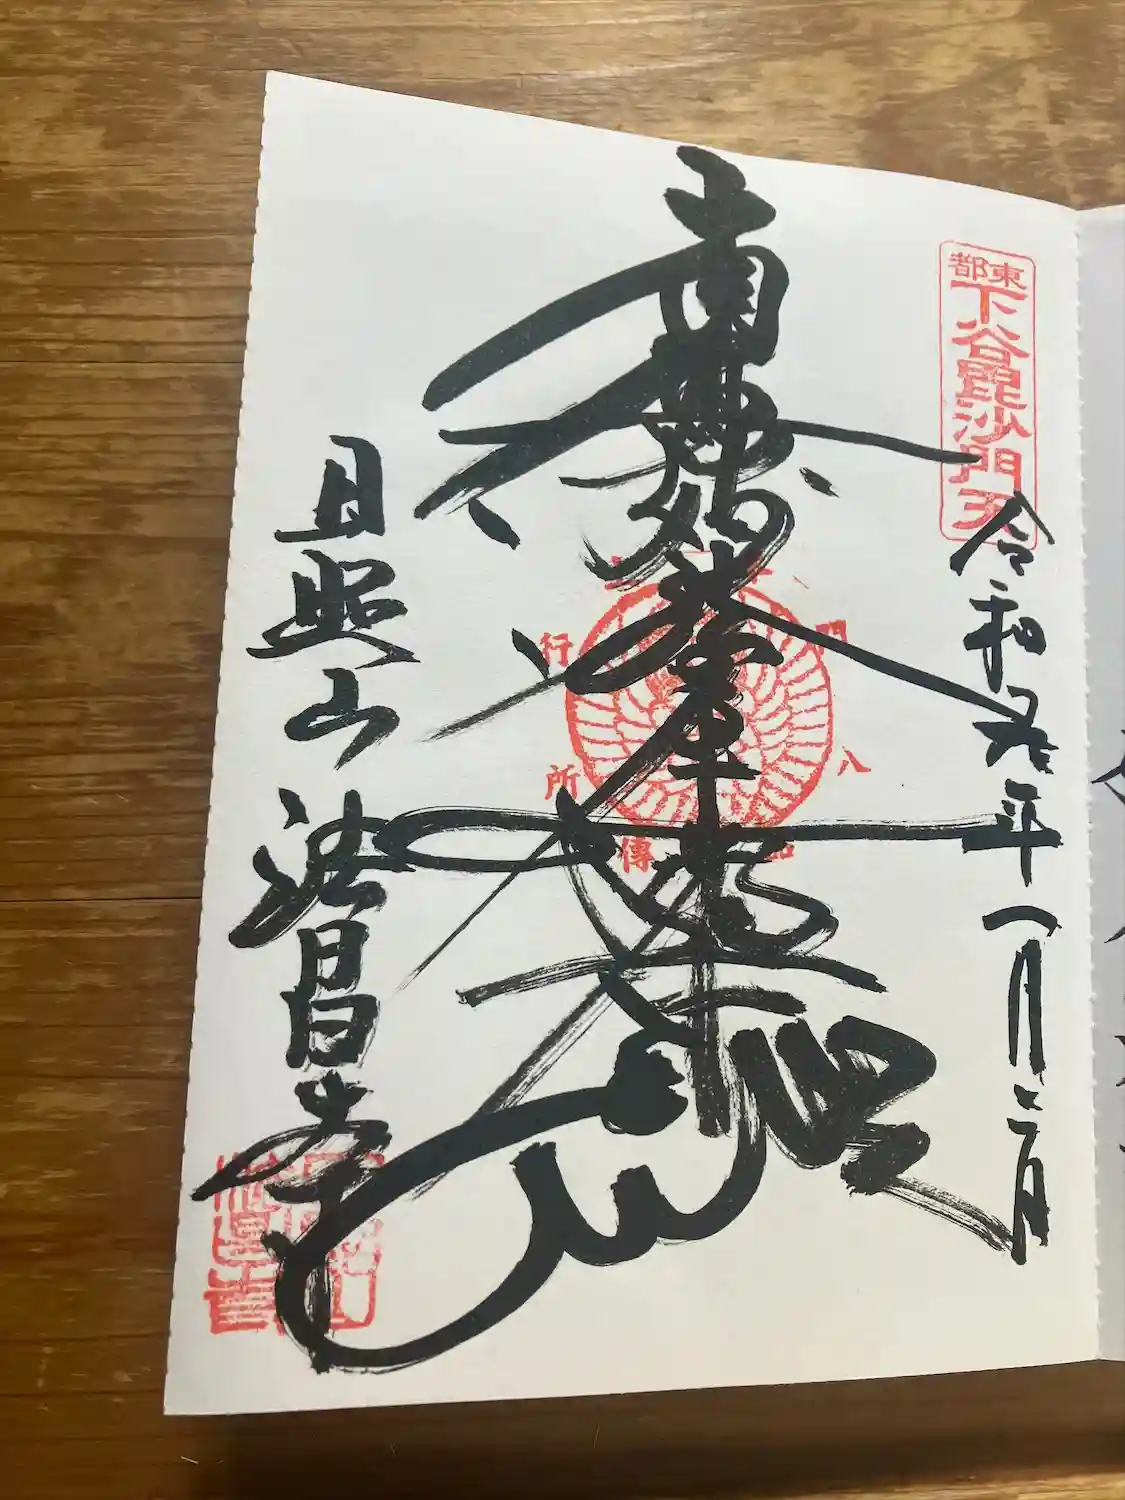 東都
下谷毘沙門天
令和五年一月二日
南無妙法蓮華経
日照山 法昌寺
行
所
傳
門
八